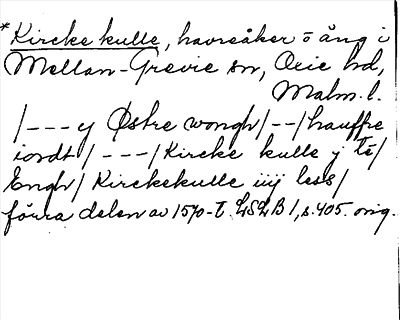 * Kircke kulle, havreåker o äng i
Mellan-Grevie sn, Oxie hd,
Malm. l.
/--- y Østre wongh/--/hauffre
iordt/ ---/Kircke kulle j té/
Engh/ Kirckekulle iiij less/
förra delen av 1570-t. LSLB 1, s. 405. orig.